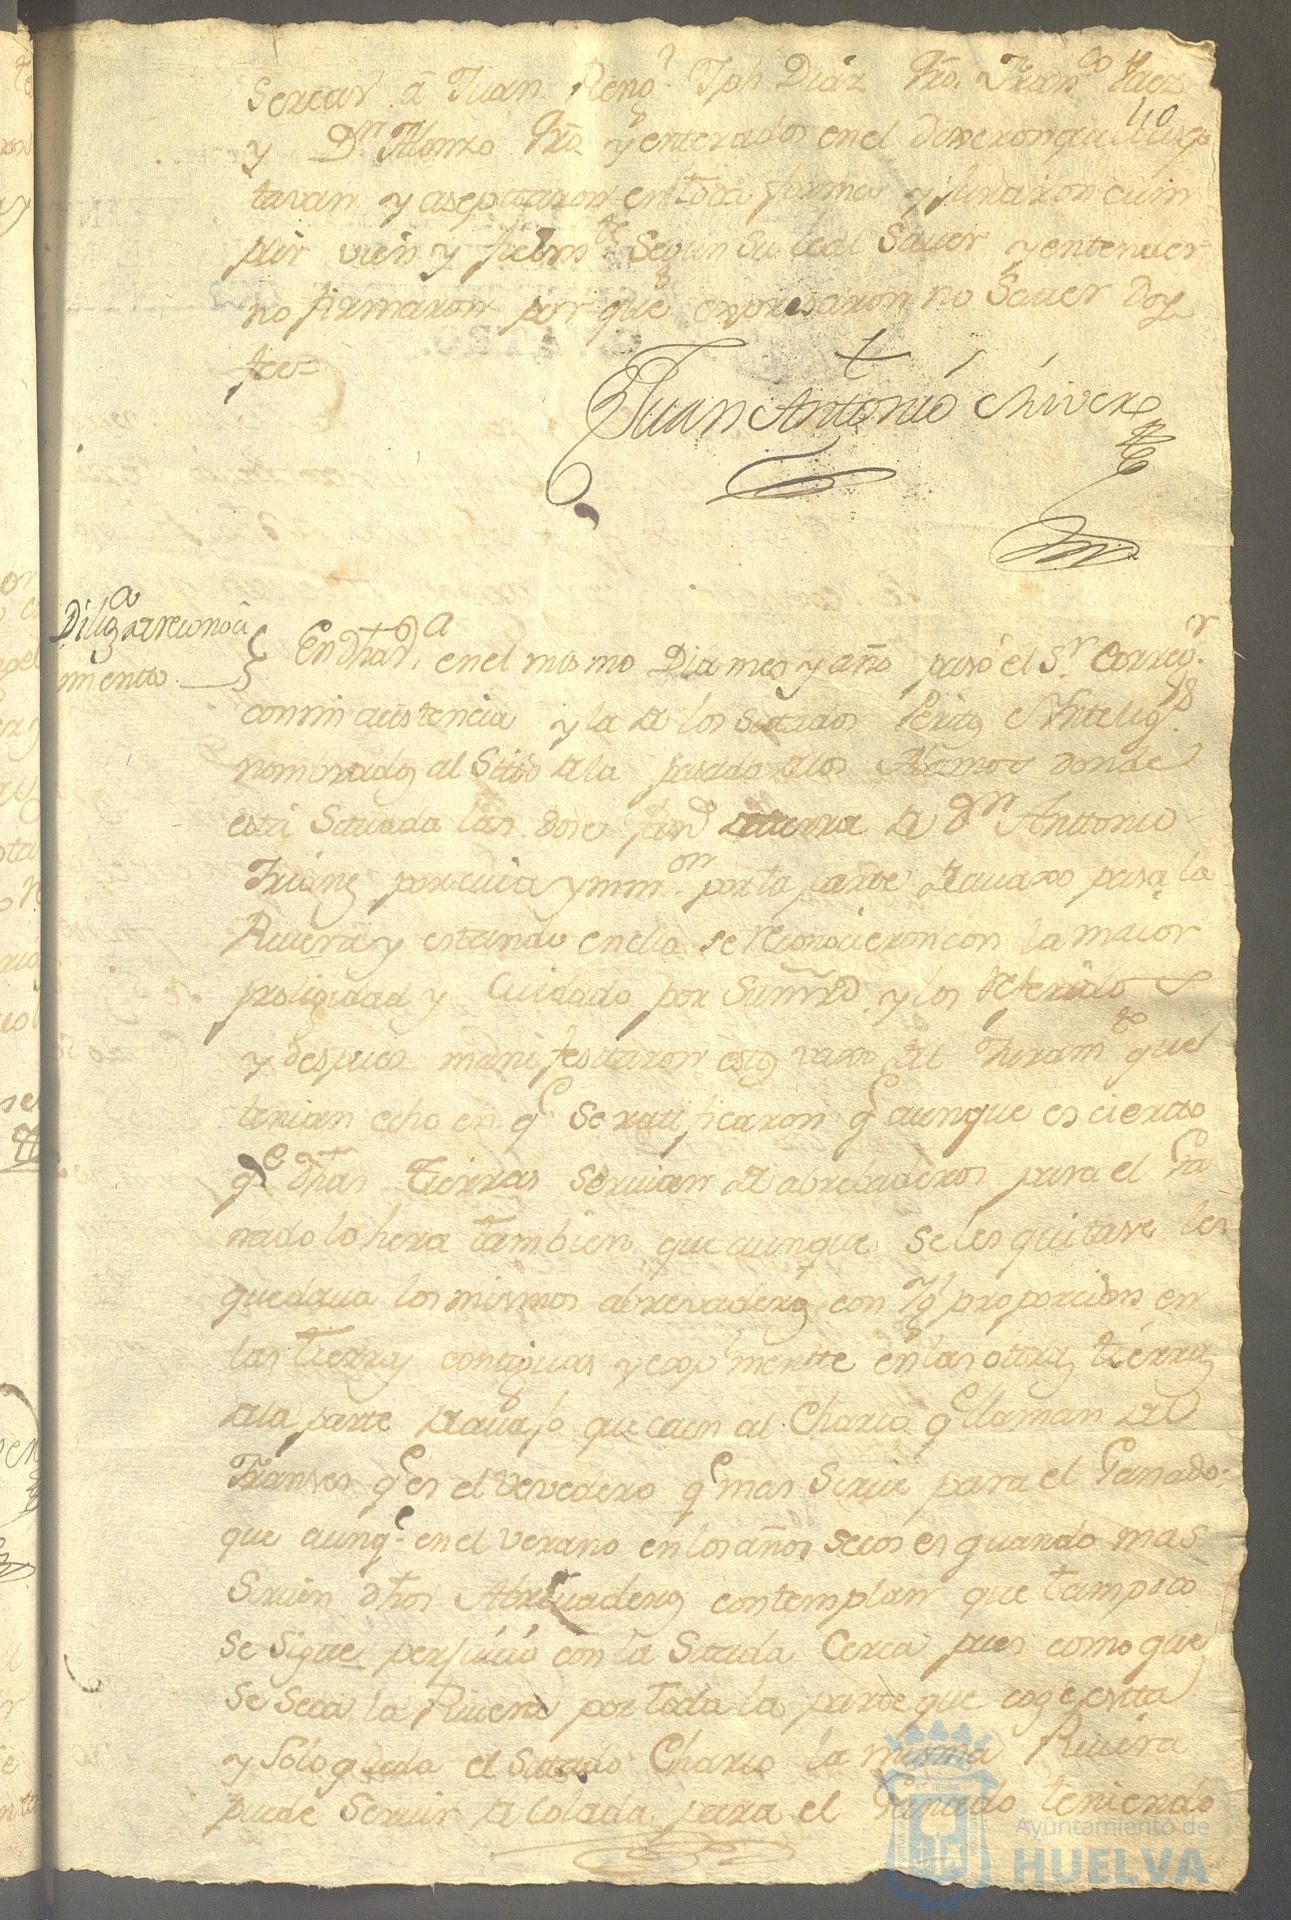 Sercar. á Juan Reno. Jph Diaz Ro. Franco Paez
110
y Dn Alonzo Ro. y enterados en el dixeron que
tavan y aseptaron en toda forma y Juraron cum
plir vien y fielmte Segun Su leal Saver y entender
no firmaron por que expresaron no Saver Doy
fee=
Juan Antonio Chivere
Diliga de reconoci
miento
En dha va. en el mismo Dia mes y año pasó el Sr. Corregr.
con mi asistencia y la de los Sitados Peritos Inteligs.
nombrados al Sitio de la pasada de los Alamos donde
está Situada las dose fans de tierra de Dn Anttonio
Trianes por cuia ymmon. por la parte de avaxo pasa la
Rivera y estando en ella se reconocieron con la maior
prolixidad y Cuidado por Su mrd y los referidos
y despues manifestaron estos vaxo del Juramto que
tenian echo en q Se ratificaron q aunque es cierto
qe dhas Tierras Servian de abrebaderos para el Ga
nado lo hera tambien que aunque Se les quitase les
quedava los mismos abrevaderos con ygl proporcion en
las tierras contiguas y espl mentte en las otras tierras
de la parte de avajo que caen al Charco q llaman del
Trianses q es el vevedero q mas Sirve para el Ganado:
que aunqe. en el verano en los años secos es quando mas
Sirven dhos Abrevaderos contemplan que tampoco
Se Sigue perjuicio con la Sitada Cerca pues como que
Se Seca la Rivera por toda la parte que coge esta
y Solo queda el Sitado Charco la misma Rivera
puede Servir de Colada para el Ganado teniendo
Ayuntamiento de
HUELVA